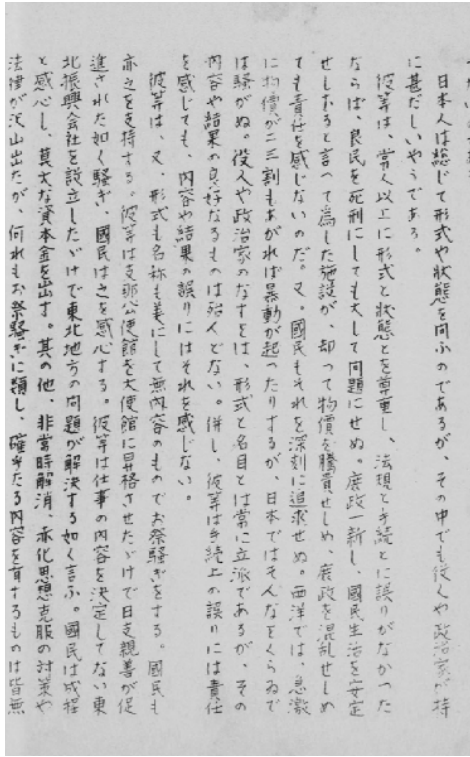 日本人は総じて形式や状態を問ふのであるが、その中でも役人や政治家が特
に甚だしいやうである。
彼等は、常人以上に形式と状態とを尊重し、法規と手続とに誤りがなかった
ならば、良民を死刑にしても大して問題にせぬ。庶政一新し、國民生活を安定
せしむると言って為した施設が、却って物價を騰貴せしめ、庶政を混乱せしめ
ても責任を感じないのだ。又、國民もそれを深刻に追求せぬ。西洋では、急激
に物價が二三割もあがれば暴動が起ったりするが、日本ではそんなことくらゐで
は騒がぬ。役人や政治家のなすことは、形式と名目とは常に立派であるが、その
内容や結果の良好なるものは殆んどない。併し、彼等は手続上の誤りには責任
を感じても、内容や結果の誤りにはそれを感じない。
彼等は、又、形式も名称も美にして無内容のものでお祭騒ぎをする。國民も
亦之を支持する。彼等は支那公使館を大使館に昇格させたゞけで日支親善が促
進された如く騒ぎ、國民はさを感心する。彼等は仕事の内容を決定してない東
北振興会社を設立したゞけで東北地方の問題が解決する如く言ふ。國民は成程
と感心し、莫大な資本金を出す。其の他、非常時解消、赤化思想克服の対策や
法律が沢山出たが、何れもお祭騒ぎに類し、確乎たる内容を有するものは皆無